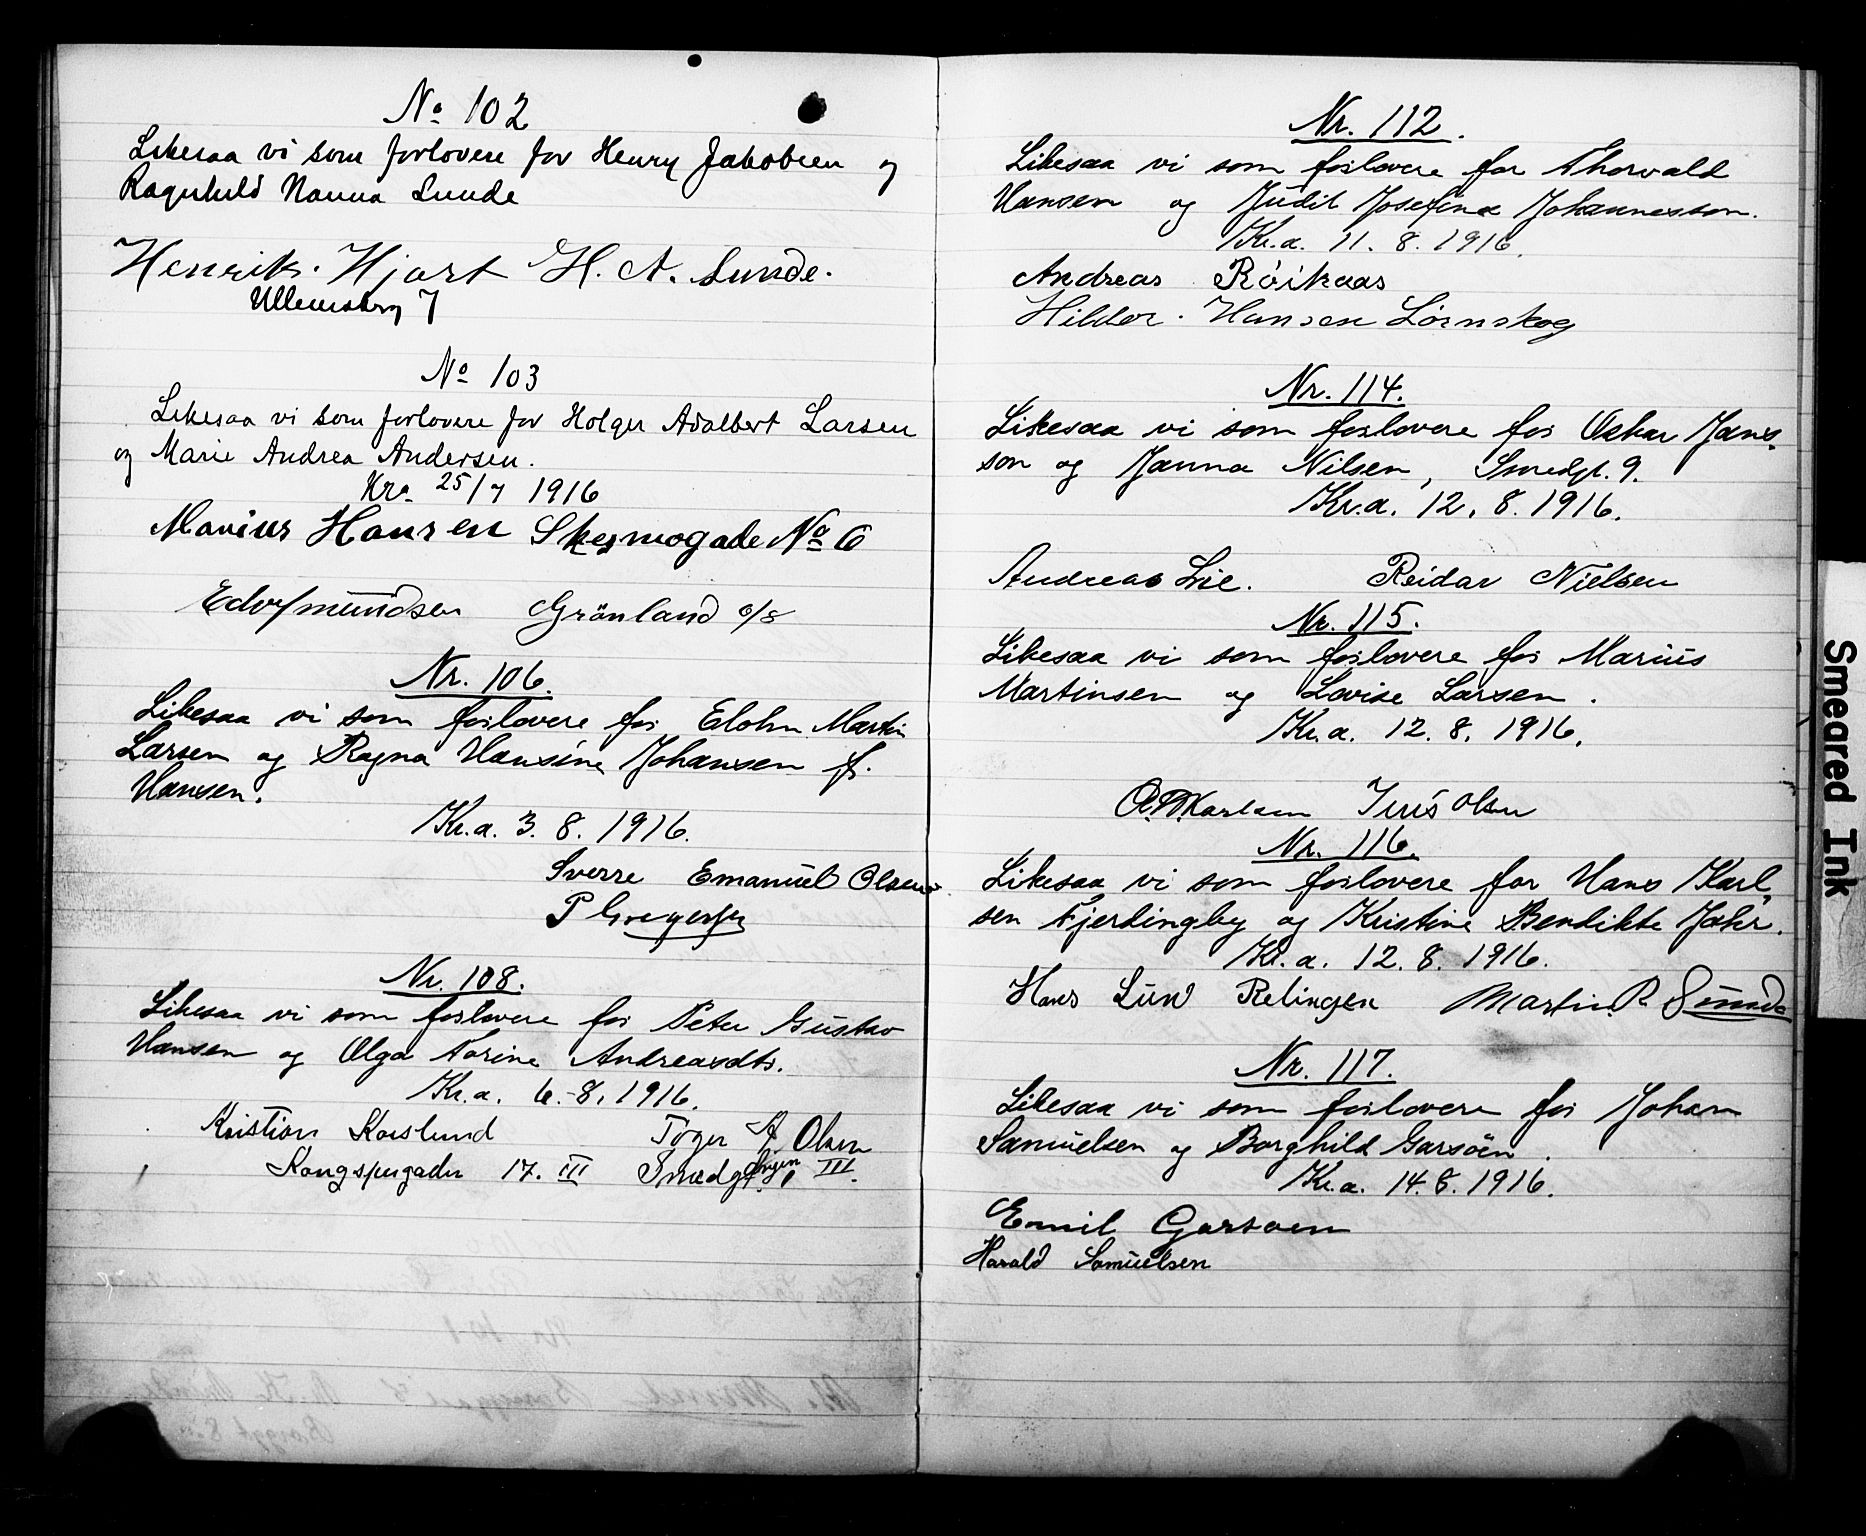 No 102
Likesaa vi som forlovere for Henry Jakobsen og
Ragnhild Nanna Sunde
Henrik Hjort H. A. Sunde.
Ullevaalsvg 7
No 103
Likesaa vi som forlovere for Holger Adalbert Larsen
og Marie Andrea Andersen.
Kra 25/7 1916
Marius Hansen Skesmogade No 6
Grönland 6/8
Nr. 106.
Likesaa vi som forlovere for Martin
Larsen og Ragna Hansine Johansen f.
Hansen.
Kr.a. 3. 8. 1916.
Sverre Emanuel Olsen
P Gregersen
Nr. 108.
Likesaa vi som forlovere for Peter Gustav
Hansen og Olga Karine Andreasdtr.
Kr.a. 6.-8. 1916.
Kristian Korslund Tøger A Olsen
Kongspergaden 17. III Smedgt. III.
Nr. 112.
Likesaa vi som forlovere for Thorvald
Hansen og Judit Josefina Johannesson.
Kr.a. 11. 8. 1916.
Andreas Röikaas
Hildor. Hansen Lörnskog
Nr. 114.
Likesaa vi som forlovere for Oskar Jans-
son og Janna Nilsen, Smedgt. 9.
Kr.a. 12. 8. 1916.
Andreas Lie. Reidar Nielsen
Nr. 115.
Likesaa vi som forlovere for Marius
Martinsen og Lovise Larsen.
Kr.a. 12. 8. 1916.
Karlsen Olsen
Nr. 116.
Likesaa vi som forlovere for Hans Karl
sen Fjerdingby og Kristine Bendikte Jahr.
Kr.a. 12. 8. 1916.
Hans Lund Relingen Martin R Sunde
Nr. 117.
Likesaa vi som forlovere for Johan
Samuelsen og Borghild Garsöen.
Kr.a. 14. 8. 1916.
Emil Garsoen
Harald Samuelsen
Smeared Ink